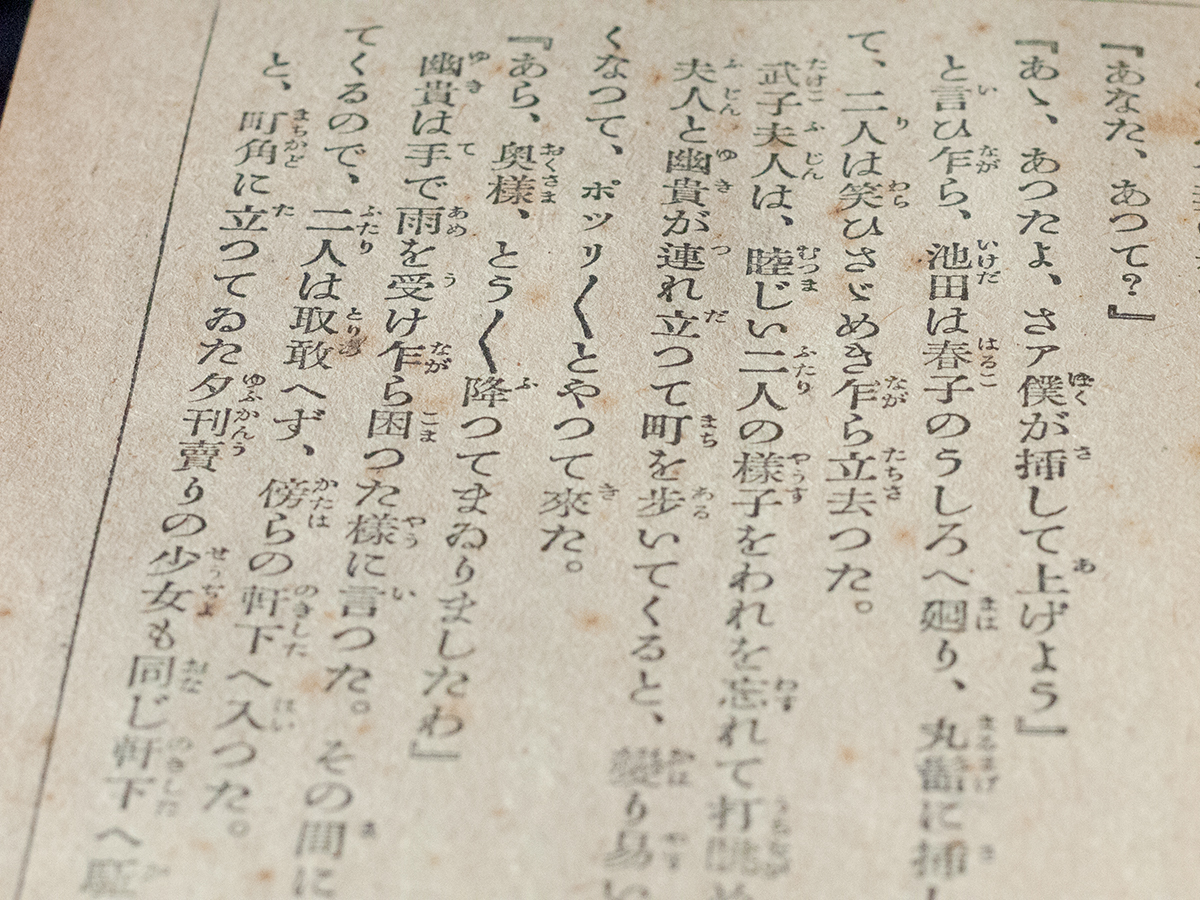 『あなた、あつて？』
『あゝ、あつたよ、さァ僕が挿して上げよう』
と言ひ乍ら、池田は春子のうしろへ廻り、丸髷に挿し
て、二人は笑ひさゞめき乍ら立去つた。
武子夫人は、睦じい二人の様子をわれを忘れて打眺め
夫人と幽貴が連れ立つて町を歩いてくると、變り易い
くなつて、ポツリ〱とやつて來た。
『あら、奥様、とう〱降つてまゐりましたわ』
幽貴は手で雨を受け乍ら困つた様に言つた。その間に
てくるので、二人は取敢へず、傍らの軒下へ入つた。
と、町角に立つてゐた夕刊賣りの少女も同じ軒下へ駈